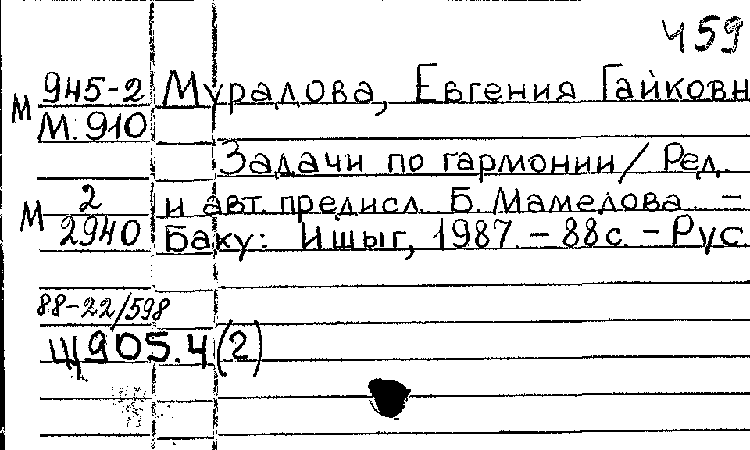 Ч59
М 945-2 Мурадова, Евгения Гайковн
М.910
Задачи по гармонии/ Ред.
М 2 и авт. предисл. Б. Мамедова. –
2940 Баку: Ишыг, 1987. – 88 с. – Рус
88-22/598
Щ905.4(2)